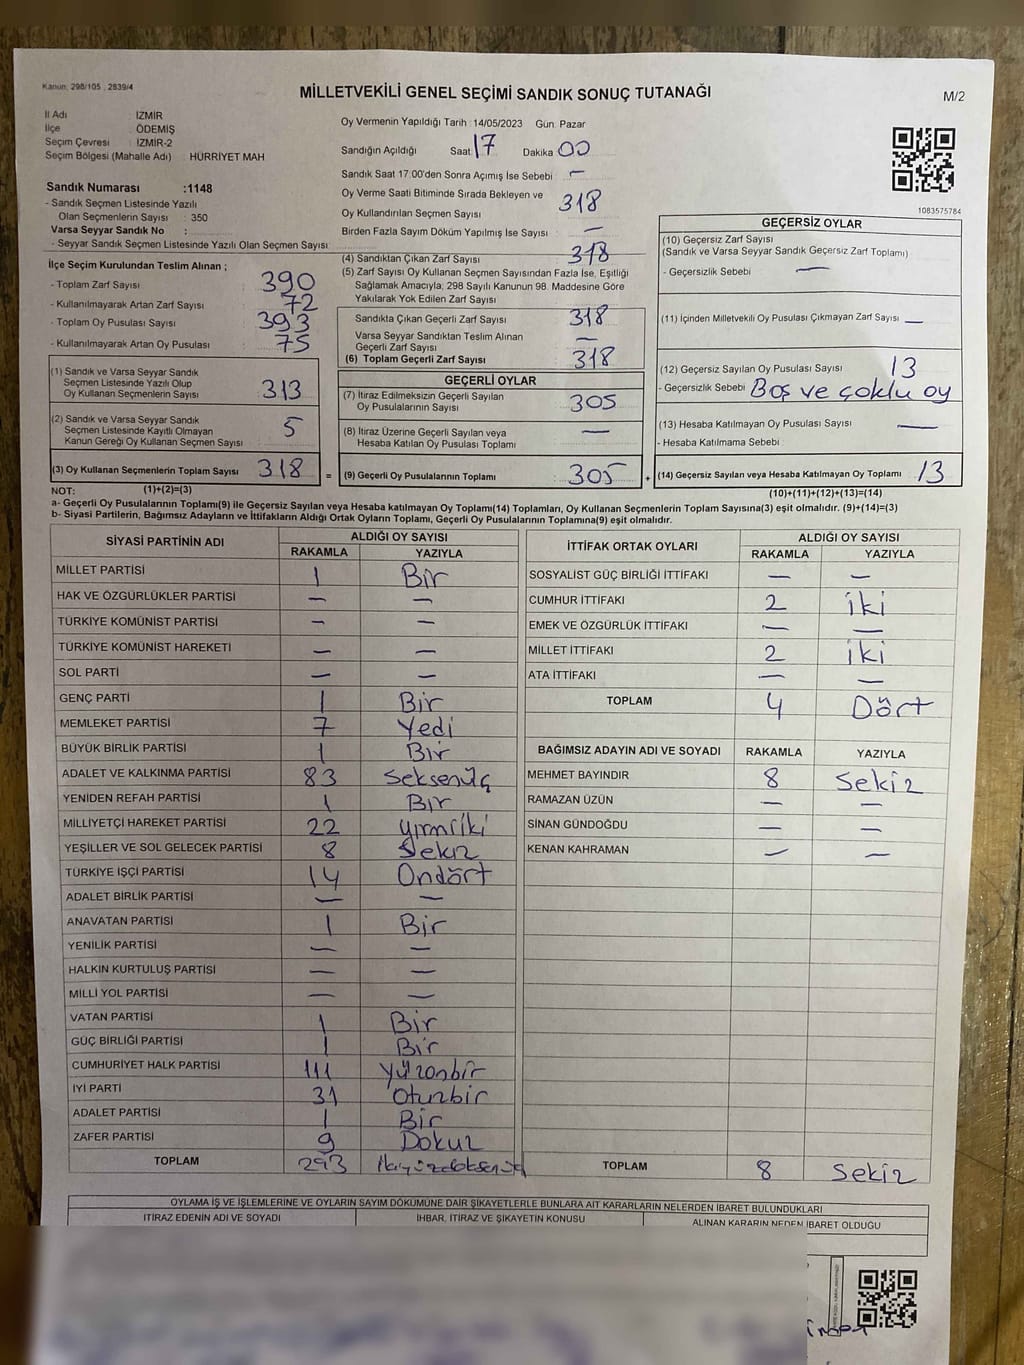 Kanun: 298/105 , 2839/4
MİLLETVEKİLİ GENEL SEÇİMİ SANDIK SONUÇ TUTANAĞI
M/2
İl Adı İZMİR
İlçe ÖDEMİŞ
Seçim Çevresi : İZMİR-2
Seçim Bölgesi (Mahalle Adı) : HÜRRİYET MAH
Sandık Numarası :1148
- Sandık Seçmen Listesinde Yazılı
Olan Seçmenlerin Sayısı : 350
Varsa Seyyar Sandık No :
- Seyyar Sandık Seçmen Listesinde Yazılı Olan Seçmen Sayısı :
Oy Vermenin Yapıldığı Tarih : 14/05/2023 Gün: Pazar
Sandığın Açıldığı Saat: 17 Dakika 00
Sandık Saat 17.00'den Sonra Açımış İse Sebebi : —
Oy Verme Saati Bitiminde Sırada Bekleyen ve
Oy Kullandırılan Seçmen Sayısı : 318
Birden Fazla Sayım Döküm Yapılmış İse Sayısı : —
1083575784
İlçe Seçim Kurulundan Teslim Alınan ;
- Toplam Zarf Sayısı : 390
- Kullanılmayarak Artan Zarf Sayısı : 72
- Toplam Oy Pusulası Sayısı : 393
- Kullanılmayarak Artan Oy Pusulası : 75
(1) Sandık ve Varsa Seyyar Sandık
Seçmen Listesinde Yazılı Olup
Oy Kullanan Seçmenlerin Sayısı : 313
(2) Sandık ve Varsa Seyyar Sandık
Seçmen Listesinde Kayıtlı Olmayan
Kanun Gereği Oy Kullanan Seçmen Sayısı : 5
(3) Oy Kullanan Seçmenlerin Toplam Sayısı 318 =
(4) Sandıktan Çıkan Zarf Sayısı : 318
(5) Zarf Sayısı Oy Kullanan Seçmen Sayısından Fazla İse, Eşitliği
Sağlamak Amacıyla; 298 Sayılı Kanunun 98. Maddesine Göre
Yakılarak Yok Edilen Zarf Sayısı :
Sandıkta Çıkan Geçerli Zarf Sayısı : 318
Varsa Seyyar Sandıktan Teslim Alınan
Geçerli Zarf Sayısı : —
(6) Toplam Geçerli Zarf Sayısı : 318
GEÇERLİ OYLAR
(7) İtiraz Edilmeksizin Geçerli Sayılan
Oy Pusulalarının Sayısı : 305
(8) İtiraz Üzerine Geçerli Sayılan veya
Hesaba Katılan Oy Pusulası Toplamı : —
(9) Geçerli Oy Pusulalarının Toplamı : 305 +
GEÇERSİZ OYLAR
(10) Geçersiz Zarf Sayısı :
(Sandık ve Varsa Seyyar Sandık Geçersiz Zarf Toplamı)
- Geçersizlik Sebebi : —
(11) İçinden Milletvekili Oy Pusulası Çıkmayan Zarf Sayısı : —
(12) Geçersiz Sayılan Oy Pusulası Sayısı : 13
- Geçersizlik Sebebi : Boş ve çoklu oy
(13) Hesaba Katılmayan Oy Pusulası Sayısı : —
- Hesaba Katılmama Sebebi :
(14) Geçersiz Sayılan veya Hesaba Katılmayan Oy Toplamı : 13
NOT: (1)+(2)=(3)
(10)+(11)+(12)+(13)=(14)
a- Geçerli Oy Pusulalarının Toplamı(9) ile Geçersiz Sayılan veya Hesaba katılmayan Oy Toplamı(14) Toplamları, Oy Kullanan Seçmenlerin Toplam Sayısına(3) eşit olmalıdır. (9)+(14)=(3)
b- Siyasi Partilerin, Bağımsız Adayların ve İttifakların Aldığı Ortak Oyların Toplamı, Geçerli Oy Pusulalarının Toplamına(9) eşit olmalıdır.
SİYASİ PARTİNİN ADI ALDIĞI OY SAYISI
RAKAMLA YAZIYLA
MİLLET PARTİSİ 1 Bir
HAK VE ÖZGÜRLÜKLER PARTİSİ — —
TÜRKİYE KOMÜNİST PARTİSİ — —
TÜRKİYE KOMÜNİST HAREKETİ — —
SOL PARTİ — —
GENÇ PARTİ 1 Bir
MEMLEKET PARTİSİ 7 Yedi
BÜYÜK BİRLİK PARTİSİ 1 Bir
ADALET VE KALKINMA PARTİSİ 83 Seksenüç
YENİDEN REFAH PARTİSİ 1 Bir
MİLLİYETÇİ HAREKET PARTİSİ 22 yirmiiki
YEŞİLLER VE SOL GELECEK PARTİSİ 8 Sekiz
TÜRKİYE İŞÇİ PARTİSİ 14 Ondört
ADALET BİRLİK PARTİSİ — —
ANAVATAN PARTİSİ 1 Bir
YENİLİK PARTİSİ — —
HALKIN KURTULUŞ PARTİSİ — —
MİLLİ YOL PARTİSİ — —
VATAN PARTİSİ 1 Bir
GÜÇ BİRLİĞİ PARTİSİ 1 Bir
CUMHURİYET HALK PARTİSİ 111 yüzonbir
İYİ PARTİ 31 Otuzbir
ADALET PARTİSİ 1 Bir
ZAFER PARTİSİ 9 Dokuz
TOPLAM 293
İTTİFAK ORTAK OYLARI ALDIĞI OY SAYISI
RAKAMLA YAZIYLA
SOSYALİST GÜÇ BİRLİĞİ İTTİFAKI — —
CUMHUR İTTİFAKI 2 iki
EMEK VE ÖZGÜRLÜK İTTİFAKI — —
MİLLET İTTİFAKI 2 iki
ATA İTTİFAKI — —
TOPLAM 4 Dört
BAĞIMSIZ ADAYIN ADI VE SOYADI RAKAMLA YAZIYLA
MEHMET BAYINDIR 8 Sekiz
RAMAZAN ÜZÜN — —
SİNAN GÜNDOĞDU — —
KENAN KAHRAMAN — —
TOPLAM 8 Sekiz
OYLAMA İŞ VE İŞLEMLERİNE VE OYLARIN SAYIM DÖKÜMÜNE DAİR ŞİKAYETLERLE BUNLARA AİT KARARLARIN NELERDEN İBARET BULUNDUKLARI
İTİRAZ EDENİN ADI VE SOYADI İHBAR, İTİRAZ VE ŞİKAYETİN KONUSU ALINAN KARARIN NEDEN İBARET OLDUĞU